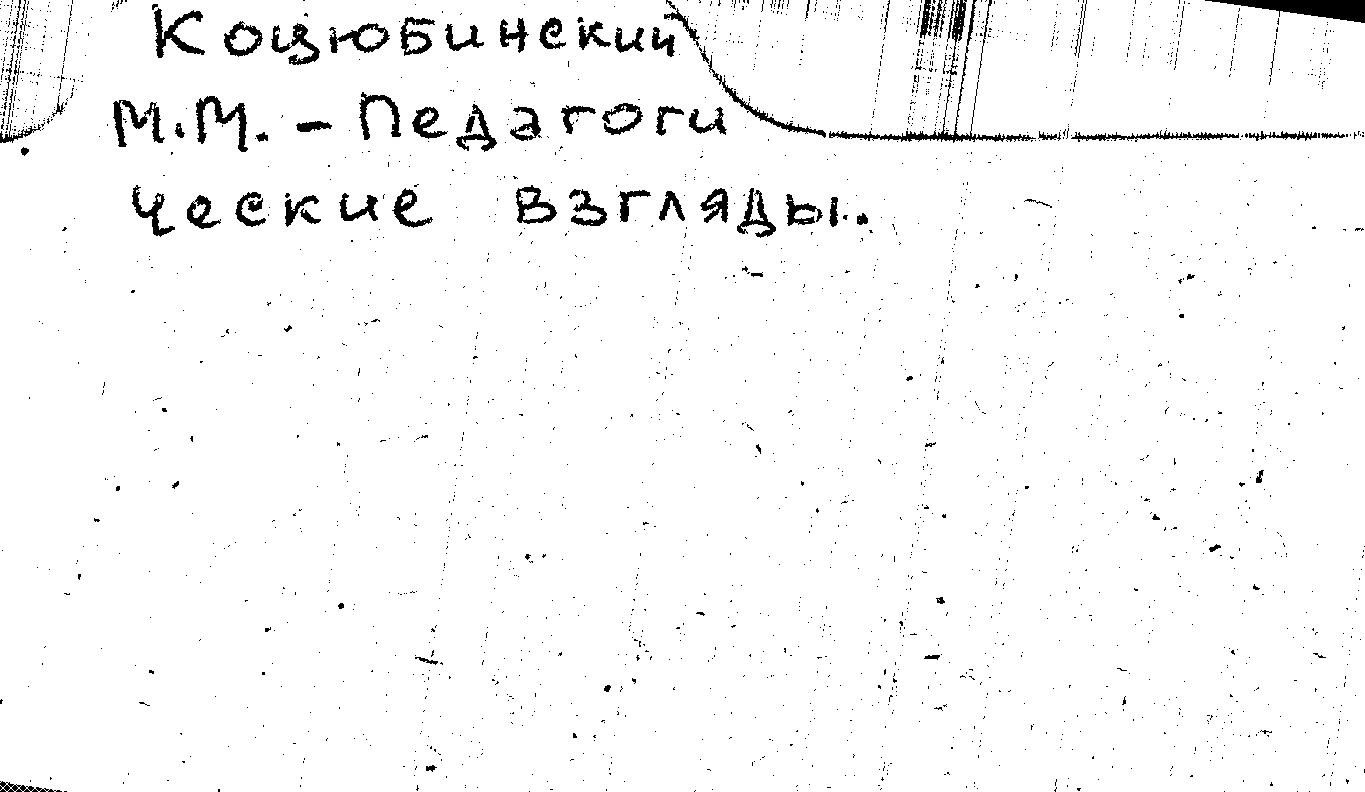 Коцюбинский
М.М. - Педагоги
ческие взгляды.